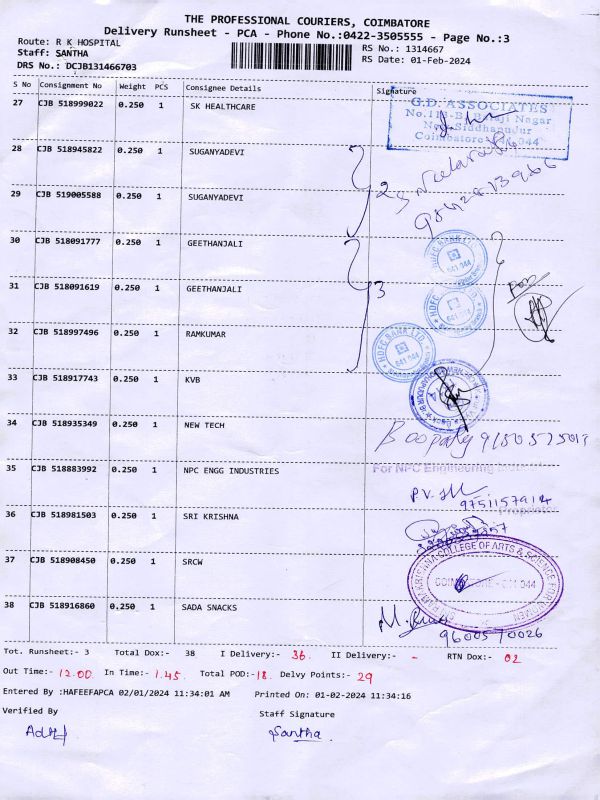 THE PROFESSIONAL COURIERS, COIMBATORE
Delivery Runsheet - PCA - Phone No.:0422-3505555 - Page No.:3
Route: R K HOSPITAL
RS No.: 1314667
Staff: SANTHA
RS Date: 01-Feb-2024
DRS No.: DCJB131466703
S No Consignment No Weight PCS Consignee Details Signature
27 CJB 518999022 0.250 1 SK HEALTHCARE
G.D. ASSOCIATES
Balaji Nagar
Coimbatore
28 CJB 518945822 0.250 1 SUGANYADEVI
2
29 CJB 519005588 0.250 1 SUGANYADEVI
30 CJB 518091777 0.250 1 GEETHANJALI
HDFC BANK LTD.
641 044
31 CJB 518091619 0.250 1 GEETHANJALI
3
HDFC BANK LTD.
641 044
32 CJB 518997496 0.250 1 RAMKUMAR
HDFC BANK LTD.
641 044
33 CJB 518917743 0.250 1 KVB
34 CJB 518935349 0.250 1 NEW TECH
35 CJB 518883992 0.250 1 NPC ENGG INDUSTRIES
For NPC Engineering
P.V.
9751157914
Proprietor
36 CJB 518981503 0.250 1 SRI KRISHNA
37 CJB 518908450 0.250 1 SRCW
RAMAKRISHNA COLLEGE OF ARTS & SCIENCE FOR WOMEN
COIMBATORE - 641 044
38 CJB 518916860 0.250 1 SADA SNACKS
9600570026
Tot. Runsheet:- 3 Total Dox:- 38 I Delivery:- 36 II Delivery:- - RTN Dox:- 02
Out Time:- 12.00 In Time:- 1.45 Total POD:- 18. Delvy Points:- 29
Entered By :HAFEEFAPCA 02/01/2024 11:34:01 AM Printed On: 01-02-2024 11:34:16
Verified By Staff Signature
Santha